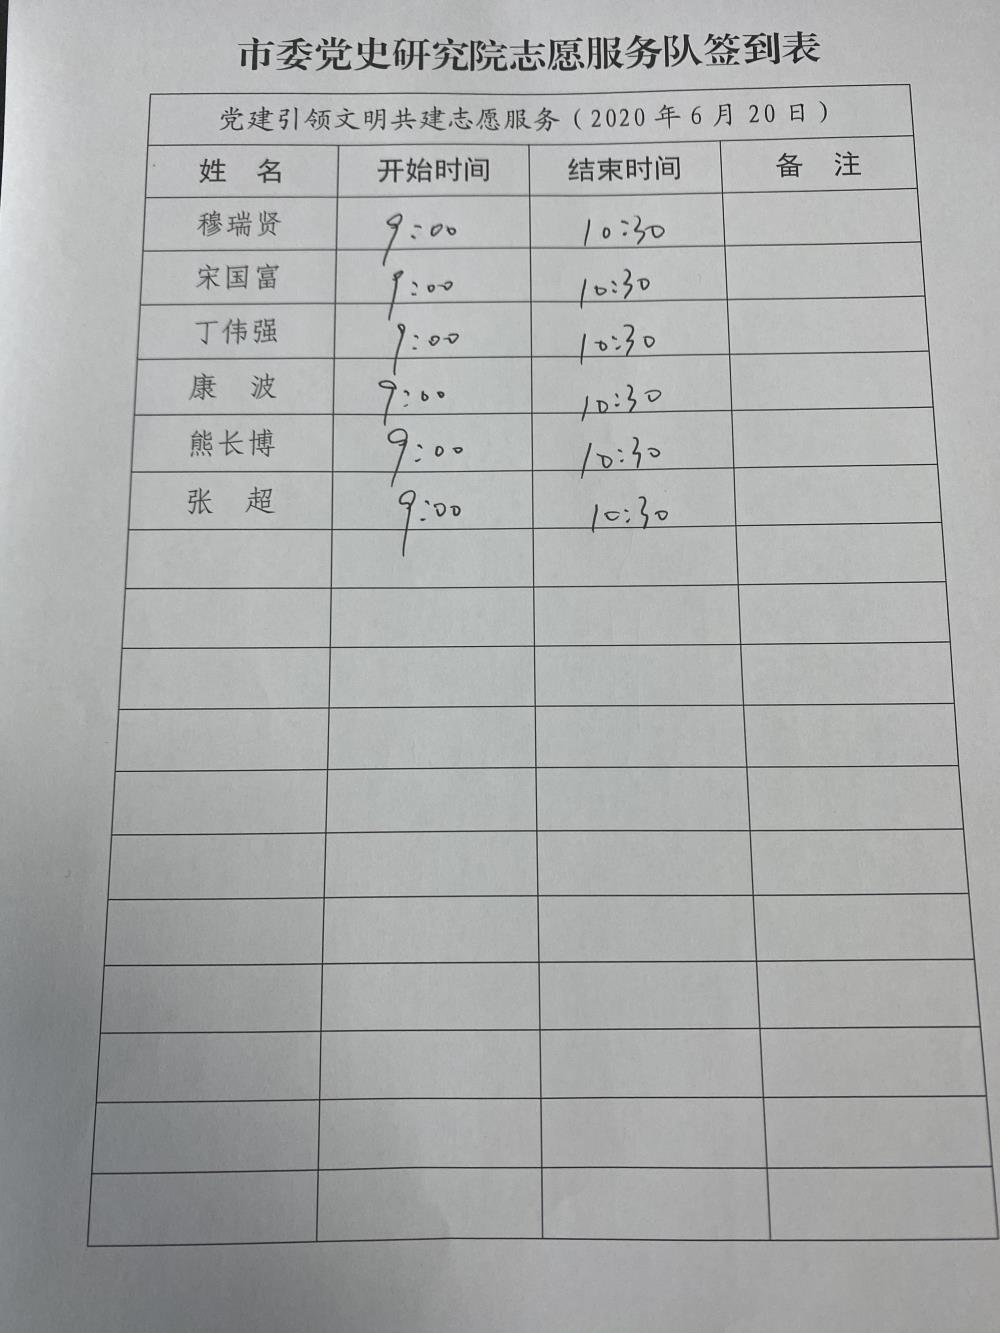 市委党史研究院志愿服务队签到表
党建引领文明共建志愿服务（2020年6月20日）
姓 名 开始时间 结束时间 备 注
穆瑞贤 9:00 10:30
宋国富 9:00 10:30
丁伟强 9:00 10:30
康 波 9:00 10:30
熊长博 9:00 10:30
张 超 9:00 10:30